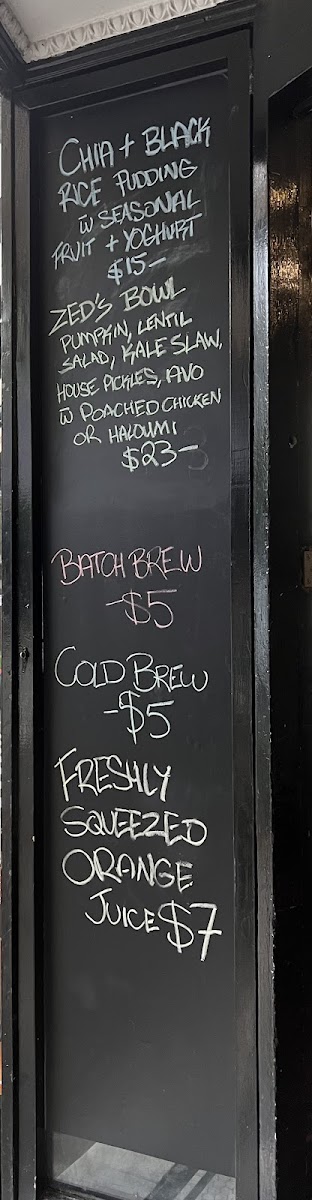 CHIA + BLACK
RICE PUDDING
W SEASONAL
FRUIT + YOGHURT
$15-
ZED'S BOWL
PUMPKIN, LENTIL
SALAD, KALE SLAW,
HOUSE PICKLES, AVO
W POACHED CHICKEN
OR HALOUMI
$23-
BATCH BREW
-$5
COLD BREW
-$5
FRESHLY
SQUEEZED
ORANGE
JUICE $7